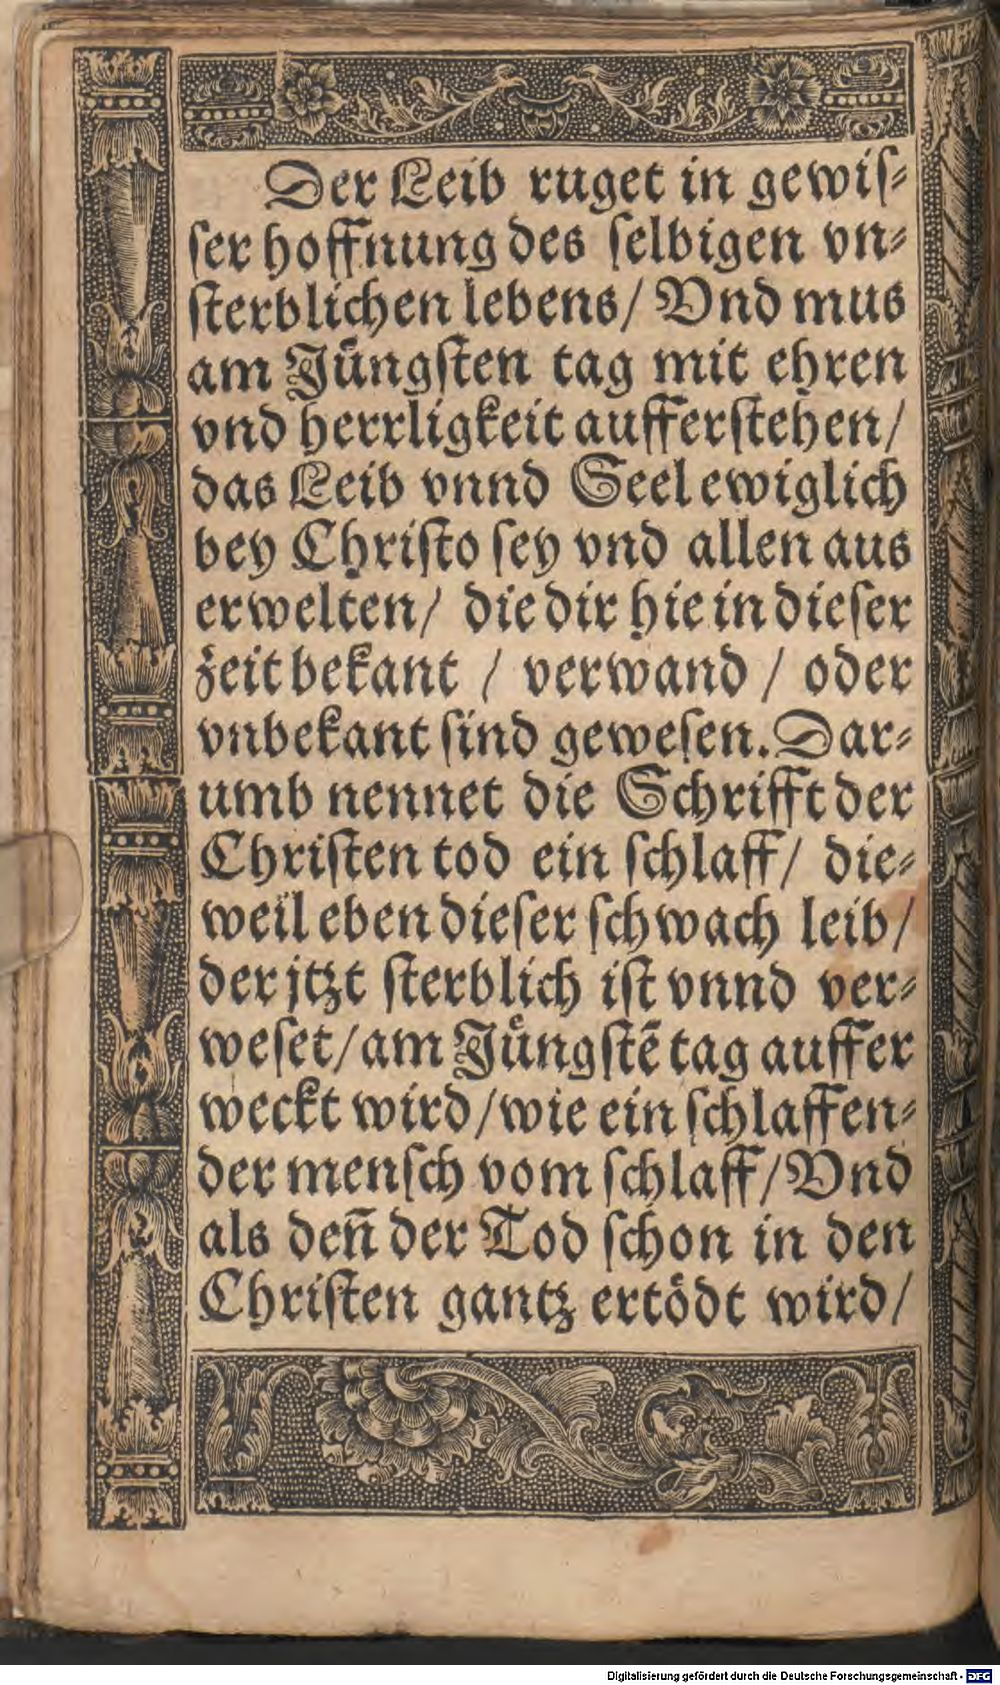 Der Leib ruget in gewiſ⸗
ſer hoffnung des ſelbigen vn⸗
ſterblichen lebens/ Vnd mus
am Jüngſten tag mit ehren
vnd herrligkeit aufferſtehen/
das Leib vnnd Seel ewiglich
bey Chriſto ſey vnd allen aus
erwelten/ die dir hie in dieſer
zeit bekant / verwand / oder
vnbekant ſind geweſen. Dar⸗
umb nennet die Schrifft der
Chriſten tod ein ſchlaff/ die⸗
weil eben dieſer ſchwach leib/
der jtzt ſterblich iſt vnnd ver⸗
weſet/am Jüngſtē tag auffer
weckt wird/wie ein ſchlaffen⸗
der menſch vom ſchlaff/Vnd
als den̄ der Tod ſchon in den
Chriſten gantz ertödt wird/
Digitalisierung gefördert durch die Deutsche Forschungsgemeinschaft - DFG